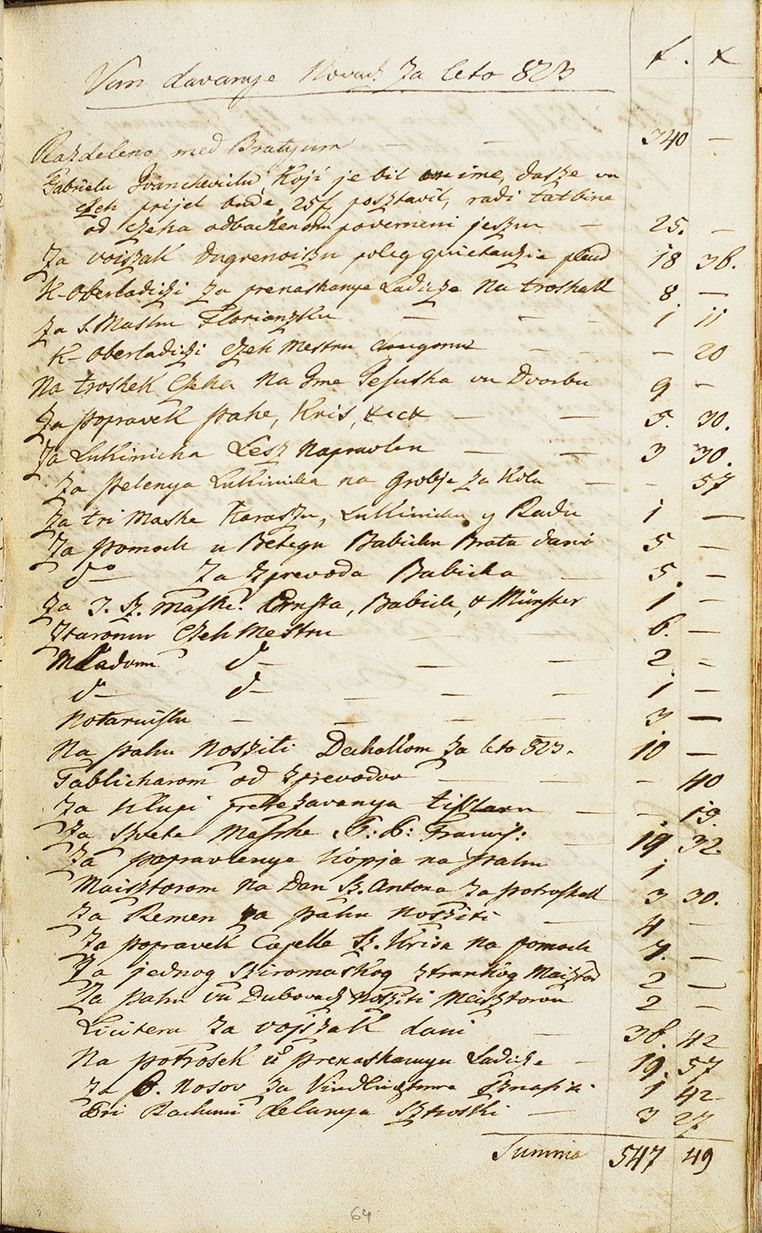 Van davanye Novacz za leto 823 f. x
Razdeleno med Bratyum — — 340 —
Gabrielu Ivanchevichu, Koji je bil ime, dasze vu
Czeh prijet bude, 25f posztavil, radi tatbine
od czeha odbachenom poverneni jeszu — 25. —
Za voiszak poleg quietanzie 18 36.
K-Oberladiczi za prenashanye Ladicze na troshek 8 —
Za S. Mashu Floriansku — — — 1 11
K-oberladiczi Czeh Mestru — — — 20
Na troshek Czeha na Ime Jesusha vu Dvorbu 9 —
Za popravek pahe, Kris, &c& — — 5. 30.
Za Lukinicha Lesz napravlen — — 3 30.
Za pelenya Lukinicha na Grobje za Kola — — 57
Za tri Mashe Karaszu, Lukinichu y Radu 1 —
Za pomoch u Betegu Babichu Bratu dani 5 —
do Za zprevoda Babicha — 5. —
Za 3. Sz. Mashe. Ernsta, Babich, & Münster 1 —
Ztaromu Czeh Mestru — — 6. —
Mladomu do — — — 2 —
do do — — — 1 —
Notariushu — — — — 3 —
Na pahu nosziti Dechakom za leto 823. 10 —
Tablicharom od zprevodov — — — 40
Za klupi — — 19.
Za Szveta Mashe P: P: Francis: — 19 32
Za popravlenye kopja na pahu 1
Maisztorom na Dan Sz. Antona za potroshek 3 30.
Za Remen na pahu nosziti — 4 —
Za popravek Capelle Sz. Krisa na pomoch 7. —
Za jednog sziromaskog ztranskog Maisztor 2 —
Za pahu vu Dubovacz nosziti Maisztorom 2 —
Licitera za vojszak dani — 36. 42
Na potrosek u prenashanyu Ladicze — 19. 57
Za 6. nosov za 1 42
Pri Rachunu delanya sztroski — 3 27
Summa 547 49
64